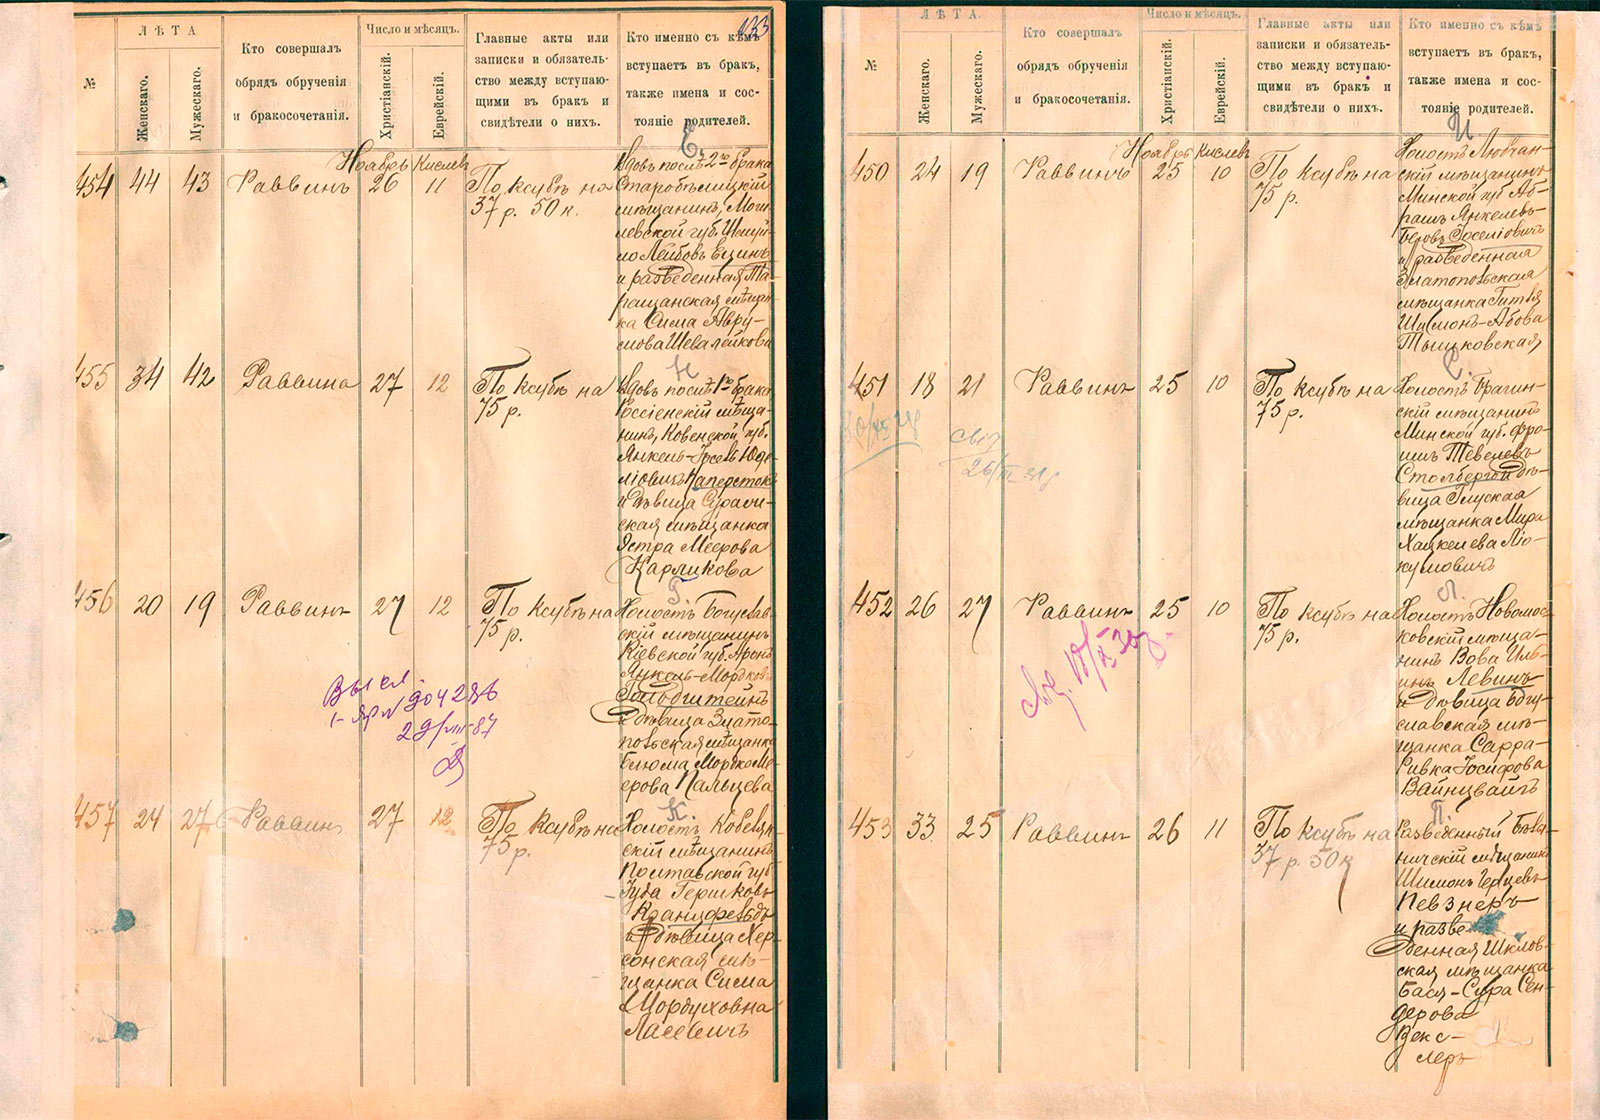 133
№
ЛѢТА
Женскаго.
Мужескаго.
Кто совершалъ
обрядъ обрученія
и бракосочетанія.
Число и мѣсяцъ.
Христіанскій.
Еврейскій.
Главные акты или
записки и обязатель-
ство между вступаю-
щими въ бракъ и
свидѣтели о нихъ.
Кто именно съ кѣмъ
вступаетъ въ бракъ,
также имена и сос-
тояніе родителей.
Е.
Ноябрь Кислевъ
454 44 43 Раввинъ 26 11
По ксубѣ на
37 р. 50 к.
Вдовъ послѣ 2го брака
Старобѣлицкій
мѣщанинъ, Моги
левской губ.
Лейбовъ Ецинъ
и разведенная Та-
ращанская мѣщан-
ка Сима Авру-
мова Шевалейкова
Н
455 34 42 Раввина 27 12
По ксубѣ на
75 р.
Вдовъ послѣ 1го брака
Россіенскій мѣща-
нинъ, Ковенской губ.
Янкель-Іосель Юде-
ліовичъ Наперстокъ
и дѣвица Сураж-
ская мѣщанка
Эстра Меерова
Карликова
Г.
456 20 19 Раввинъ 27 12
По ксубѣ на
75 р.
Холостъ Богуслав-
скій мѣщанинъ
Кіевской губ. Аронъ
Янкель-Мордковъ
Гольдштейнъ
и дѣвица Злато-
польская мѣщанка
Блюма Мордко-Ме-
ерова Пальцева
Высл.
К.
457 24 27 Раввинъ 27 12
По ксубѣ на
75 р.
Холостъ Кобеляк-
скій мѣщанинъ
Полтавской губ
Зуба Гершковъ
Кранцфельдъ
и дѣвица Хер-
сонская мѣ-
щанка Сима
Мордуховна
Ласевичъ
№
ЛѢТА.
Женскаго.
Мужескаго.
Кто совершалъ
обрядъ обрученія
и бракосочетанія.
Число и мѣсяцъ.
Христіанскій.
Еврейскій.
Главные акты или
записки и обязатель-
ство между вступаю-
щими въ бракъ и
свидѣтели о нихъ.
Кто именно съ кѣмъ
вступаетъ въ бракъ,
также имена и сос-
тояніе родителей.
И
Ноябрь Кислевъ
450 24 19 Раввинъ 25 10
По ксубѣ на
75 р.
Холостъ Любчан-
скій мѣщанинъ
Минской губ Аб-
рамъ Янкелевъ-
Беровъ Іоселіовичъ
и разведенная
Златопольская
мѣщанка Гитля
Шимонъ-Абова
Тышковская
С.
451 18 21 Раввинъ 25 10
По ксубѣ на
75 р.
Холостъ Брагин-
скій мѣщанинъ
Минской губ. Фро-
имъ Тевелевъ
Столбергъ и дѣ-
вица Глуская
мѣщанка Мира
Хацкелева Лю-
кумовичъ
Л.
452 26 27 Раввинъ 25 10
По ксубѣ на
75 р.
Холостъ Новомос-
ковскій мѣща-
нинъ Вова Иль-
инъ Левинъ
и дѣвица Богу-
славская мѣ-
щанка Сарра-
Ривка Іосифова
Вайнцвайгъ
П.
453 33 25 Раввинъ 26 11
По ксубѣ на
37 р. 50 к
Разведенный
мѣщанинъ
Шимонъ Герцевъ
Певзнеръ
и разве-
денная Шклов-
ская мѣщанка
Бася-Сура Сен-
дерова
Векс-
леръ